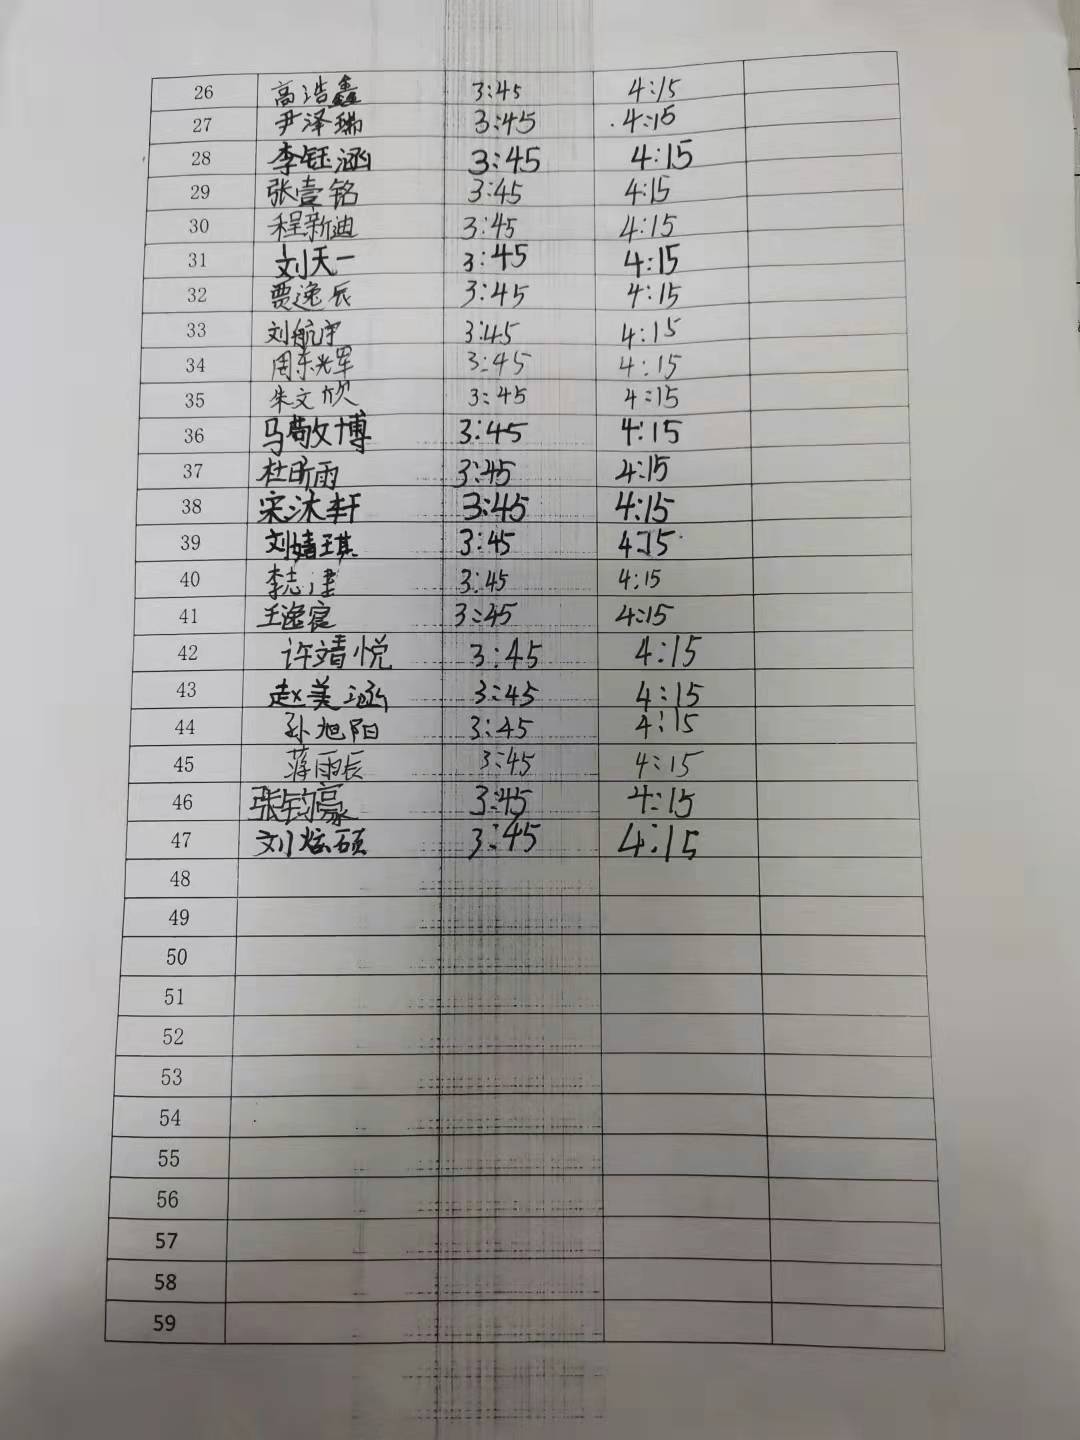 26 高浩鑫 3:45 4:15
27 尹泽瑞 3:45 4:15
28 李钰涵 3:45 4:15
29 张壹铭 3:45 4:15
30 程新迪 3:45 4:15
31 刘天一 3:45 4:15
32 贾逸辰 3:45 4:15
33 刘航宇 3:45 4:15
34 周东光军 3:45 4:15
35 朱文欣 3:45 4:15
36 马敬博 3:45 4:15
37 杜昕雨 3:45 4:15
38 宋沐轩 3:45 4:15
39 刘婧琪 3:45 4:15
40 李志津 3:45 4:15
41 王逸宸 3:45 4:15
42 许靖悦 3:45 4:15
43 赵美涵 3:45 4:15
44 孙旭阳 3:45 4:15
45 蒋雨辰 3:45 4:15
46 张钧豪 3:45 4:15
47 刘炫硕 3:45 4:15
48
49
50
51
52
53
54
55
56
57
58
59